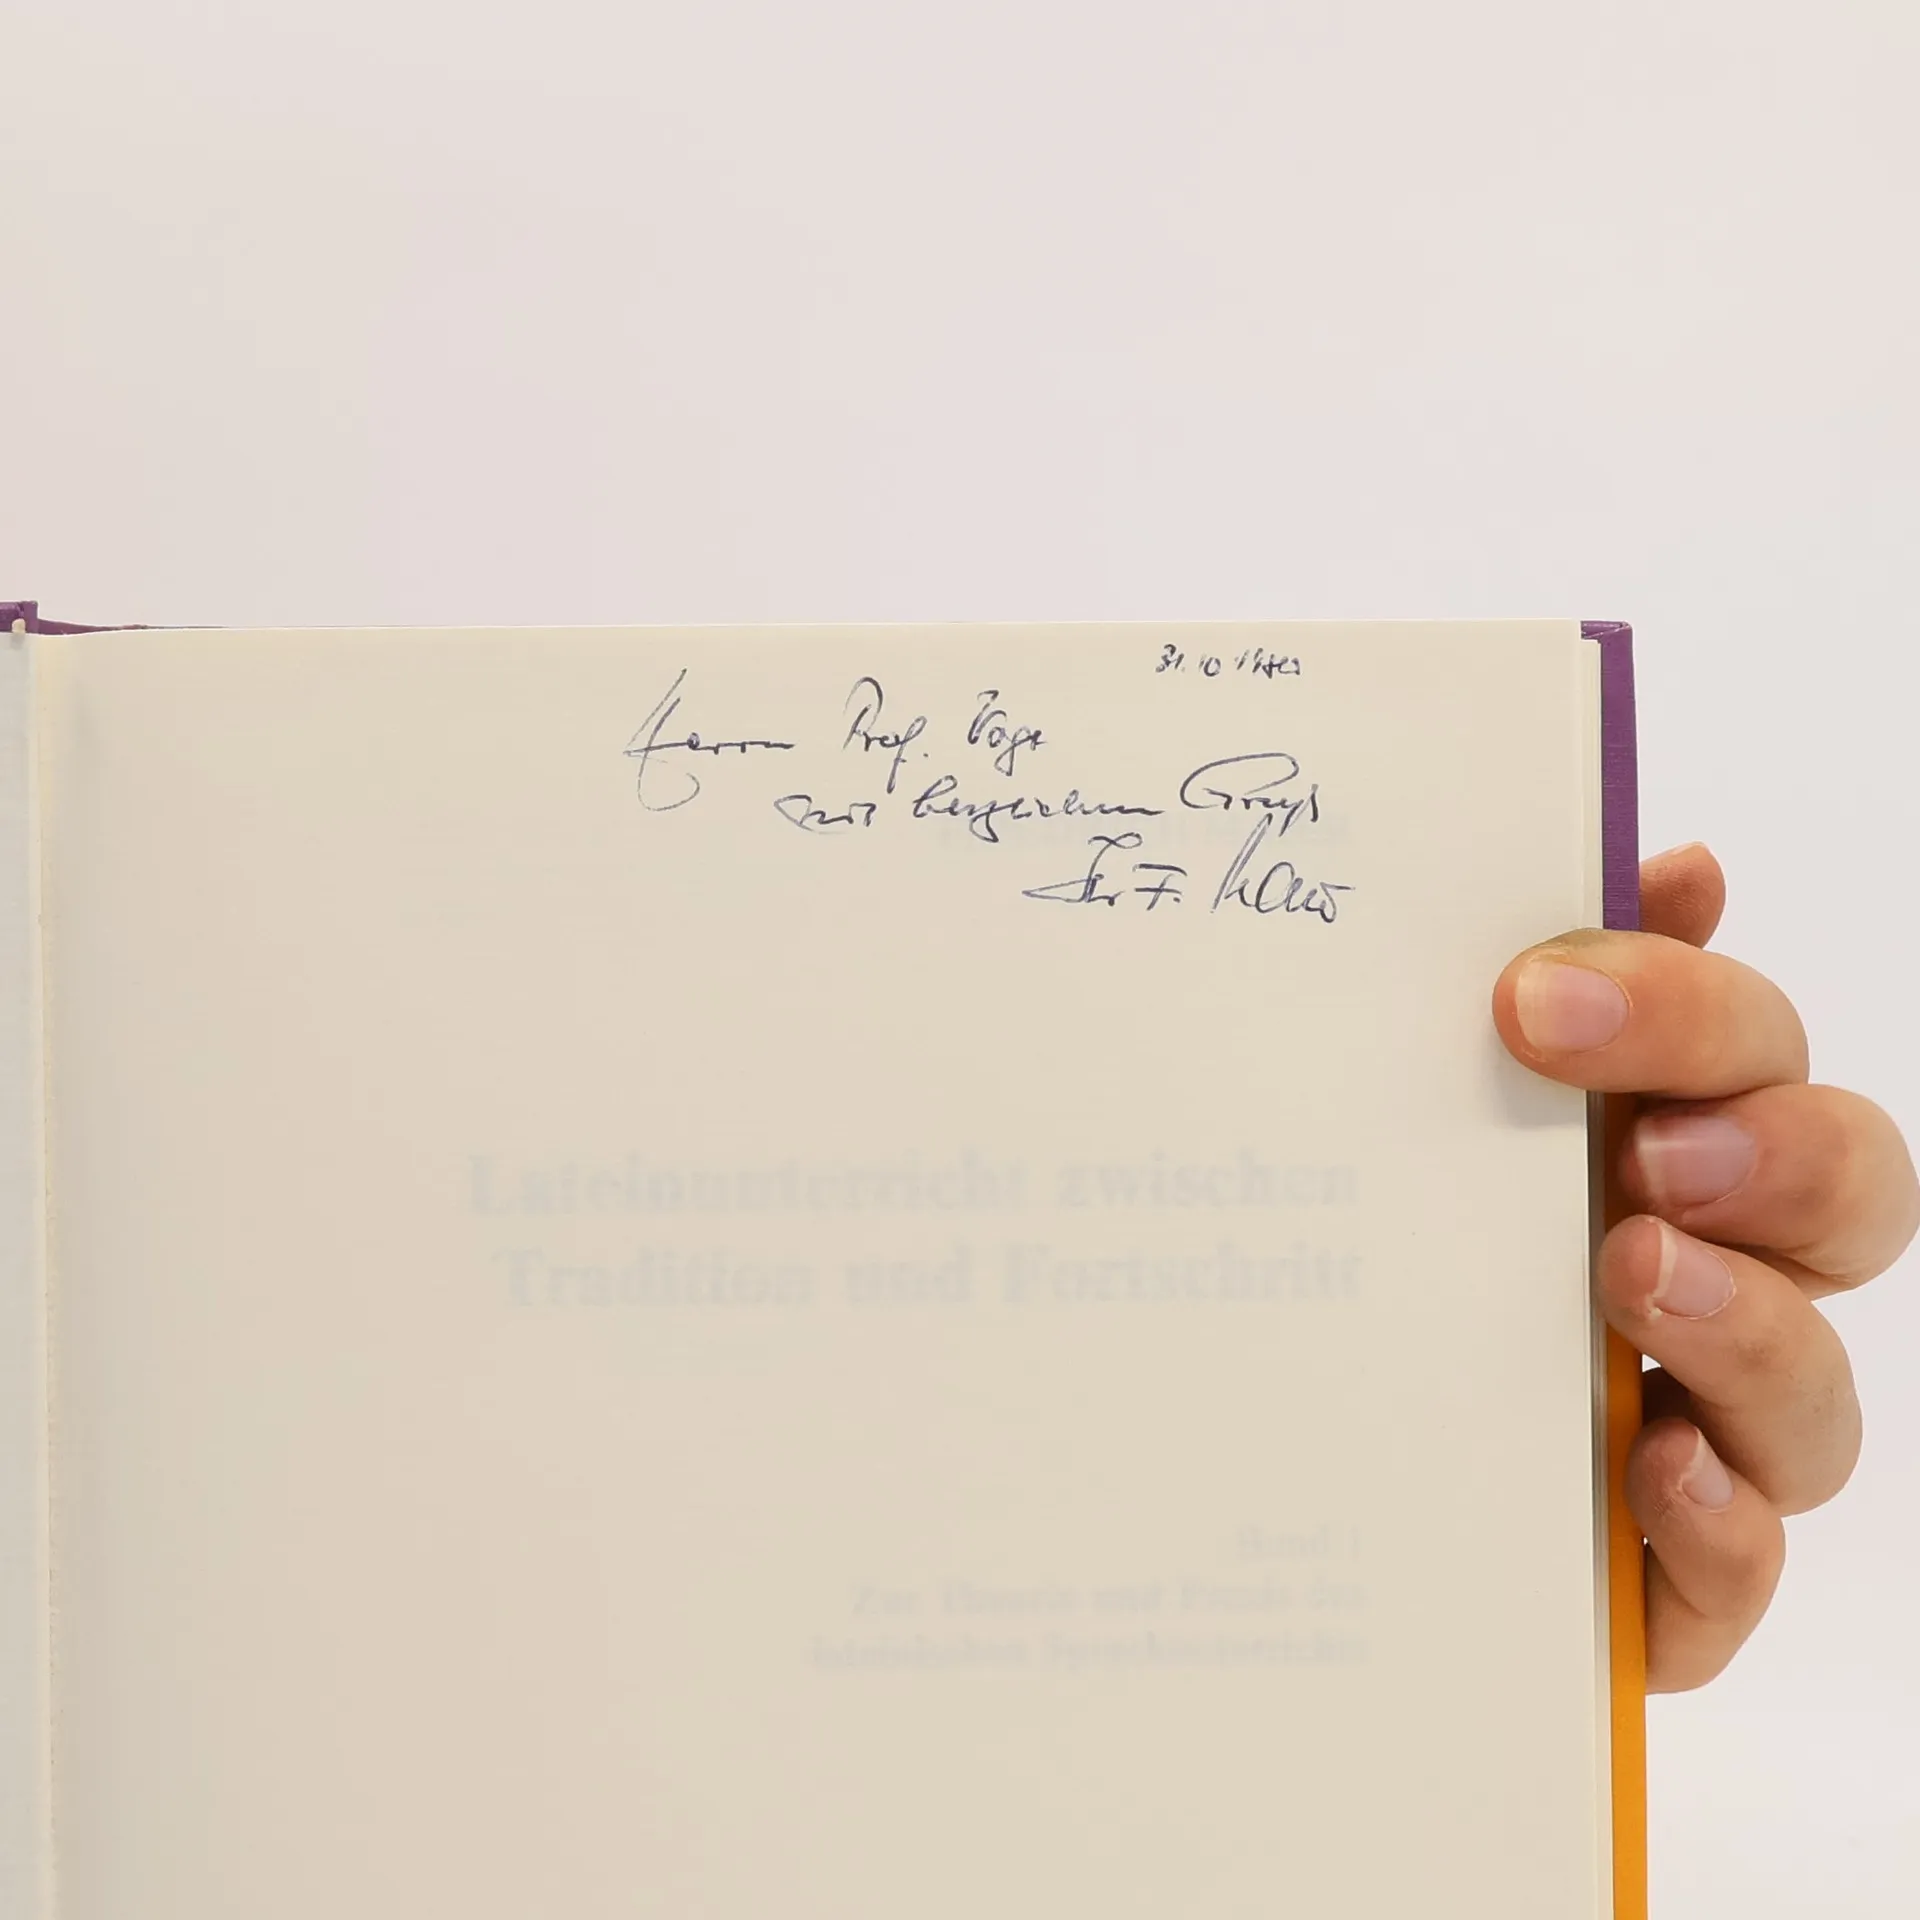 31.10.
Herrn Prof. Vogt
mit herzlichem Gruß
Ihr F. Maier
Lateinunterricht zwischen
Tradition und Fortschritt
Band 1
Zur Theorie und Praxis des
lateinischen Sprachunterrichts